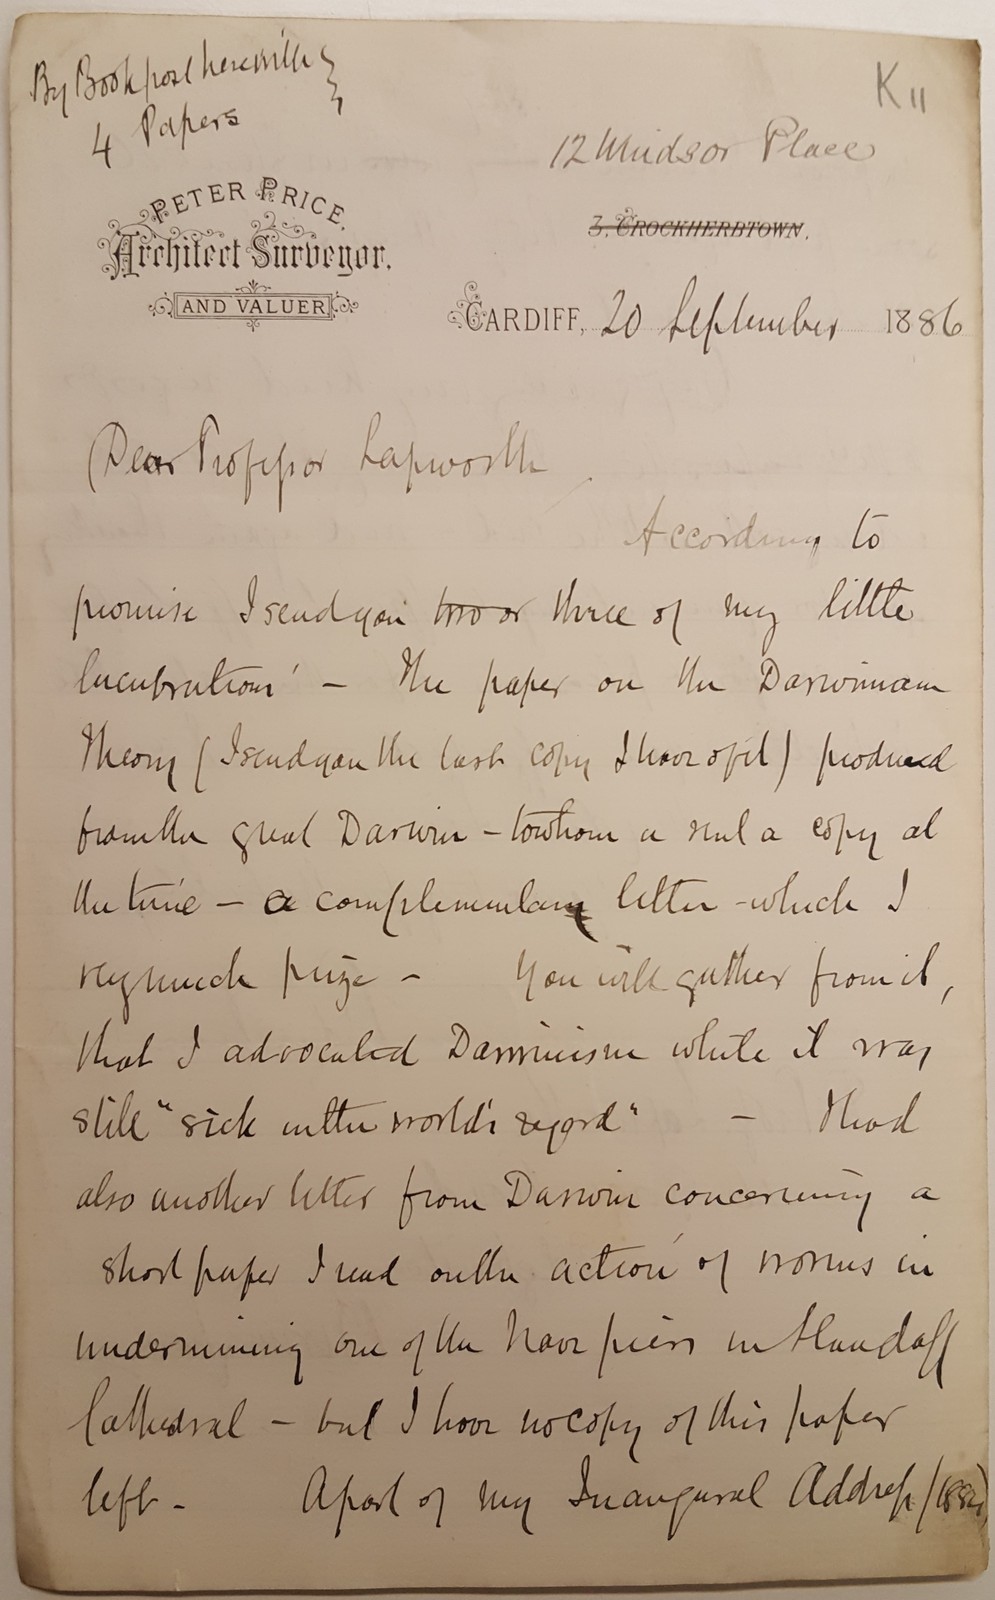 By Bookpost herewith
4 Papers
K 11
12 Windsor Place
PETER PRICE,
Architect Surveyor.
AND VALUER
3, CROCKHERBTOWN.
CARDIFF, 20 September 1886
Dear Professor Lapworth
According to
promise I send you two or three of my little
lucubrations' – The paper on the Darwinian
Theory (I send you the last copy I have of it) produced
from the great Darwin – to whom a sent a copy at
the time – a complementary letter – which I
very much prize – You will gather from it,
that I advocated Darwinism while it was
still "sick in the world's regard" – I had
also another letter from Darwin concerning a
short paper I read on the action of worms in
undermining one of the Nave piers in Llandaff
Cathedral – but I have no copy of this paper
left – A part of my Inaugural Address (1882)